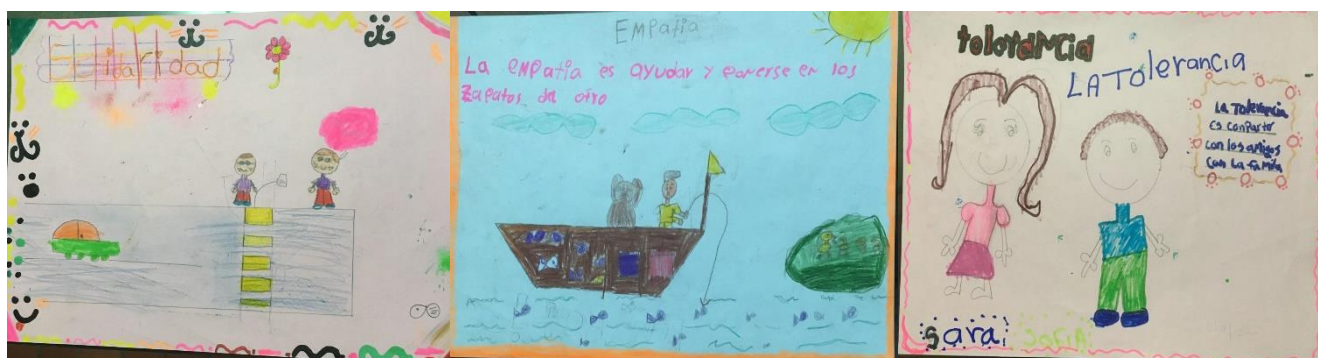 idaridad
EMPatia
La EMPatia es ayudar y ponerse en los
Zapatos de otro
tolerancia
LA Tolerancia
La Tolerancia
Es conPartir
con los amigos
con La familia
Sara
SofiA